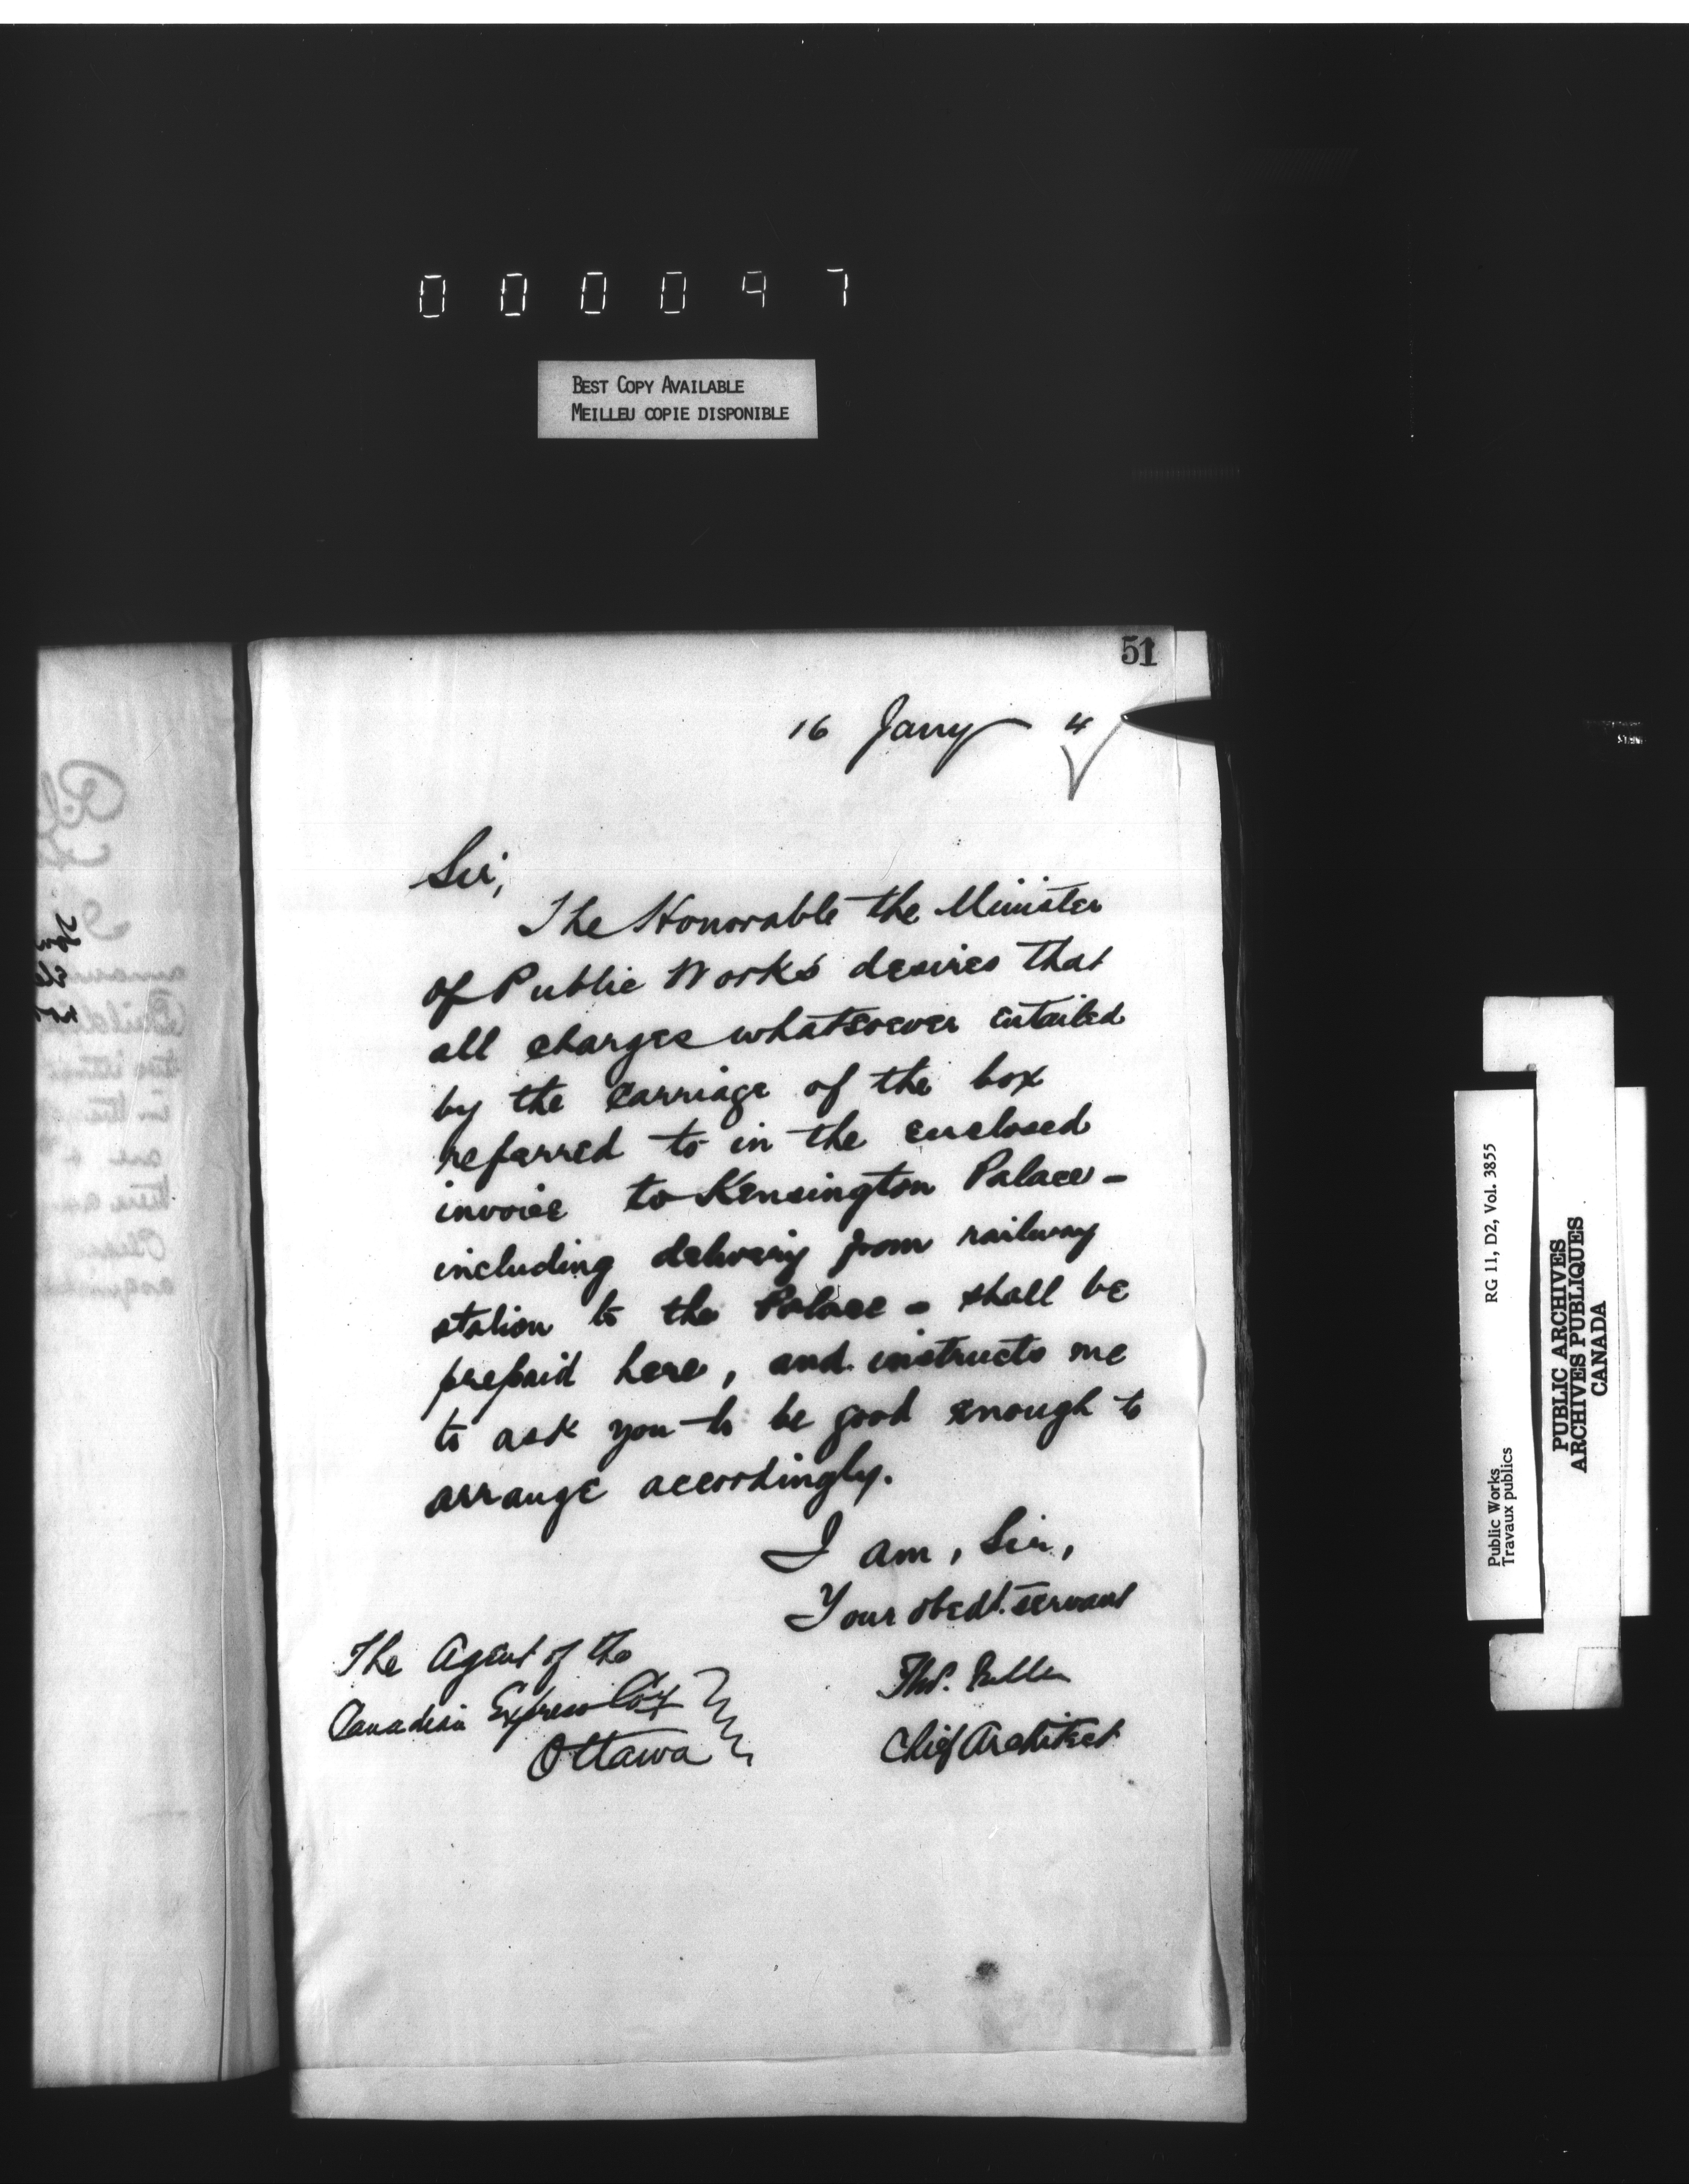 000097
BEST COPY AVAILABLE
MEILLEU COPIE DISPONIBLE
51
16 Jany 4
Sir,
The Honorable the Minister
of Public Works desires that
all charges whatsoever entailed
by the carriage of the box
referred to in the enclosed
invoice to Kensington Palace -
including delivery from railway
station to the Palace - shall be
prepaid here, and instructs me
to ask you to be good enough to
arrange accordingly.
I am, Sir,
Your obedt. servant
Thos. Fuller
Chief Architect
The Agent of the
Canadian Express Coy
Ottawa
Public Works
Travaux publics
RG 11, D2, Vol. 3855
PUBLIC ARCHIVES
ARCHIVES PUBLIQUES
CANADA